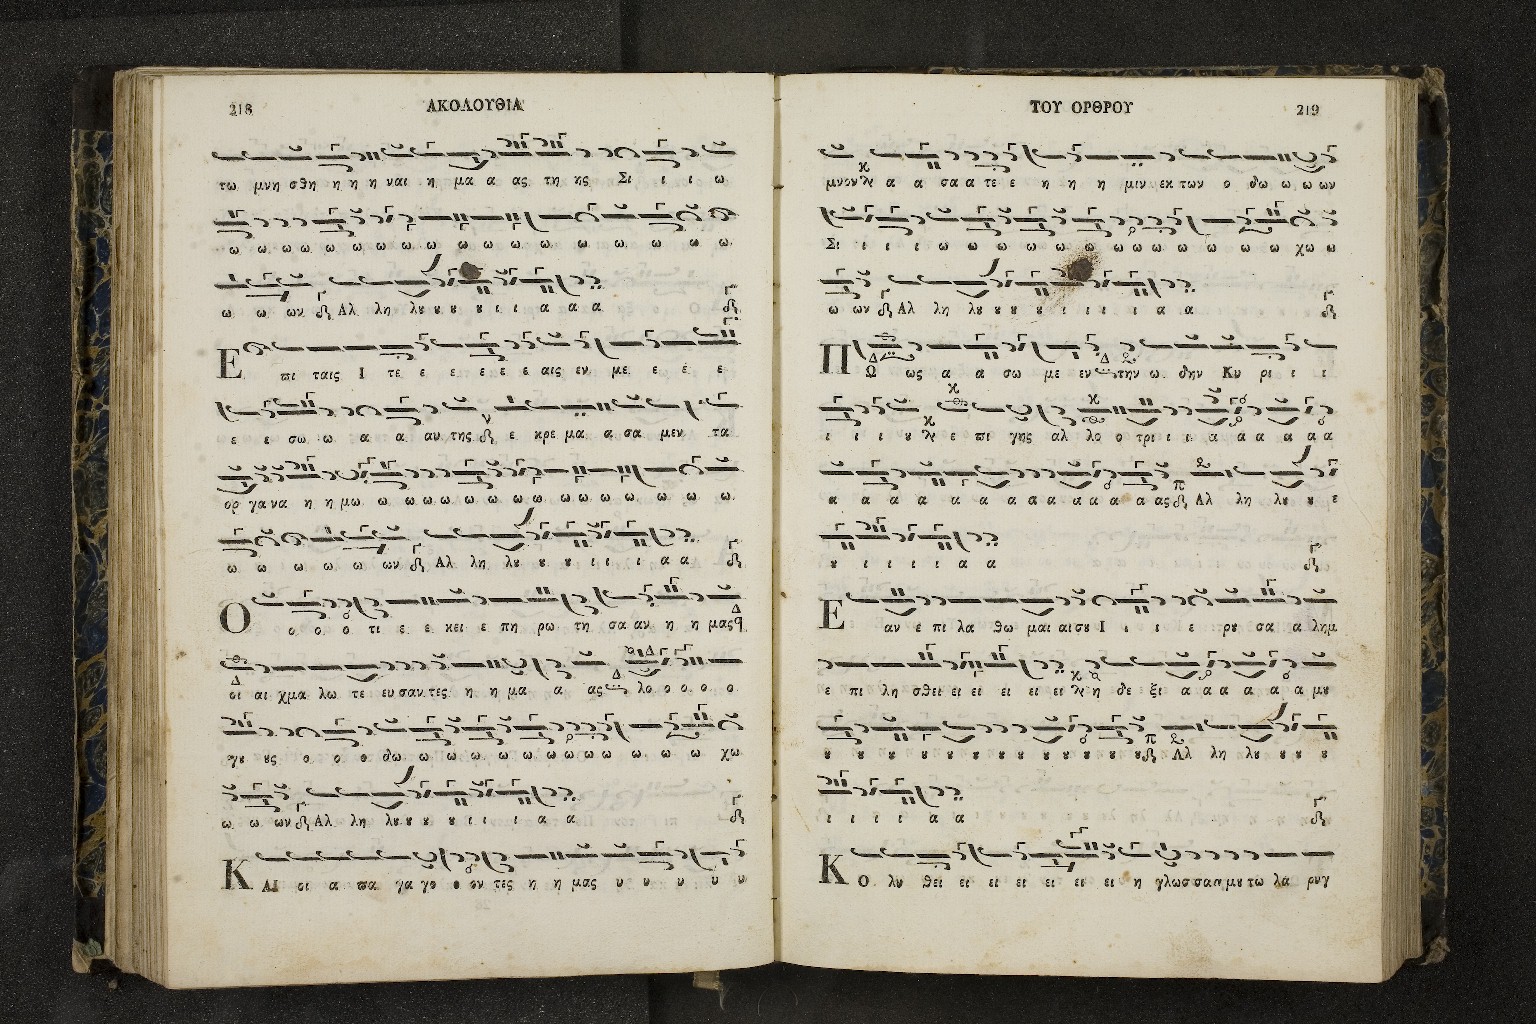 218 ΑΚΟΛΟΥΘΙΑ
τω μνη σθη η η η ναι η μα α ας τη ης Σι ι ι ω
ω ω ω ω ω ω ω ω ω ω ω ω ω ω ω ω ω ω
ω ω ων Αλ λη λȣ ȣ ȣ ȣ ι ι α α α
Ε πι ταις Ι τε ε ε ε ε ε αις εν με ε ε ε
ε ε σω ω α α αυ της ε κρε μα α σα μεν τα
ορ γα να η η μω ω ω ω ω ω ω ω ω ω ω ω ω ω ω ω
ω ω ω ω ω ων Αλ λη λȣ ȣ ȣ ι ι ι α α
Ο ο ο ο τι ε ε κει ε πη ρω τη σα αν η η μας
οι αι χμα λω τε ευ σαν τες η η μα α ας λο ο ο ο ο
γȣ ȣς ο ο ο δω ω ω ω ω ω ω ω ω ω ω ω ω χω
ω ω ων Αλ λη λȣ ȣ ȣ ȣ ι ι ι α α
Κ ΑΙ οι α πα γα γο ο ον τες η η μας υ υ υ υ υ
ΤΟΥ ΟΡΘΡΟΥ 219
μνον α α σα α τε ε η η η μιν εκ των ο δω ω ω ων
Σι ι ι ι ω ω ω ω ω ω ω ω ω ω ω ω ω χω ω
ω ων Αλ λη λȣ ȣ ȣ ȣ ι ι ι ι α α
Π Ω ως α α σω με εν την ω δην Κυ ρι ι ι
ι ι ι ȣ ε πι γης αλ λο ο τρι ι ι α α α α α α
α α α α α α α α α α α α α ας Αλ λη λȣ ȣ ε
ȣ ι ι ι ι α α
Ε αν ε πι λα θω μαι αι σȣ Ι ι ι ε ρȣ σα α λημ
ε πι λη σθει ει ει ει ει ει η δε ξι α α α α α α μȣ
ȣ ȣ ȣ ȣ ȣ ȣ ȣ ȣ ȣ ȣ ȣ ȣ ȣ ȣ Αλ λη λȣ ȣ ȣ ȣ
ι ι ι ι α α
Κ Ο λυ θει ει ει ει ει ει ει η γλωσ σα α μȣ τω λα ρυγ